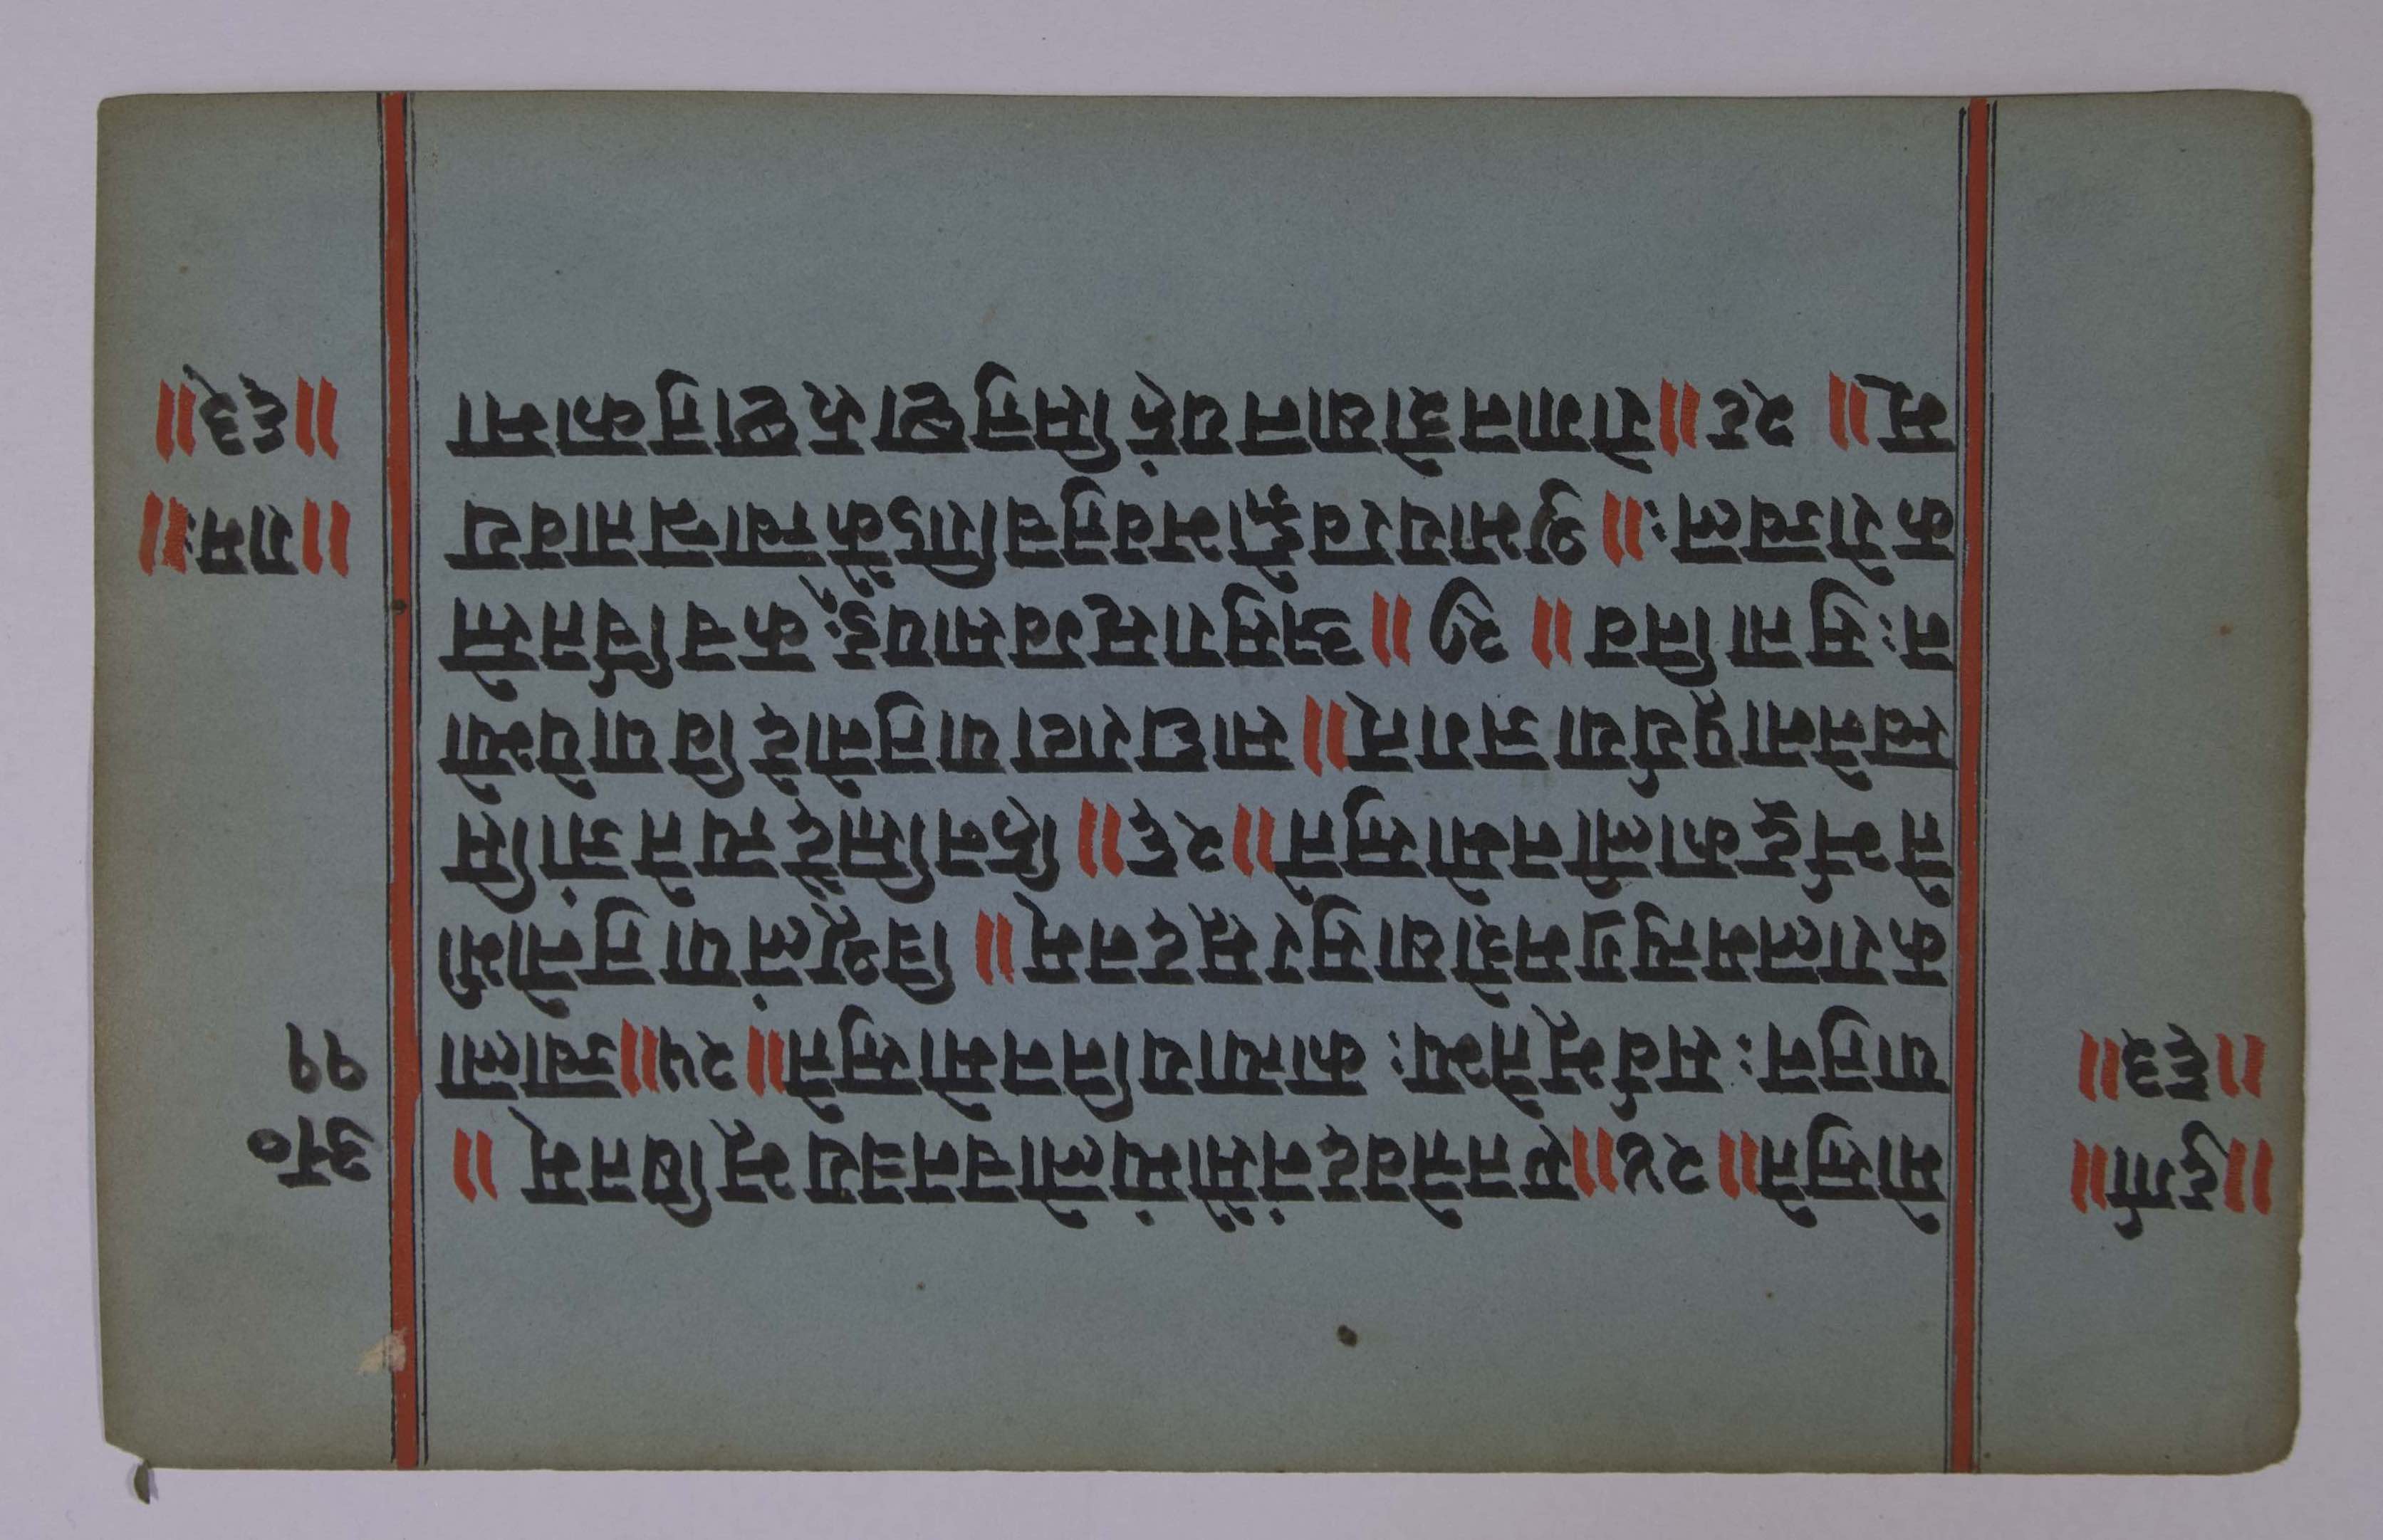 ॥दुर्गा॥
॥६३॥
मोस्तुते॥ २४॥एतत्तेवदनंसौम्यंलोचनत्रयभूषितम् ॥
पातुनः सर्वभूतेभ्यः कात्यायनिनमोस्तुते॥ २५॥ज्वाला
करालमत्युग्रमशेषासुरसूदनम्॥ त्रिशूलंपातुनोभी
तेर्भद्रकालीनमोस्तुते॥ २६॥ हिनस्तिदैत्यतेजांसि
स्वनेनापूर्यया जगत्॥ साघराटा पातुनोदेवि पापेभ्यो
नःसुतानिव॥ २७॥ असुरासृग्वसापङ्कचर्चितस्ते
करोज्वलः॥ शुभायरवड्गोभवतुचरिाडकैत्त्वान्नतावय
म्॥ २८॥रोगानशेषानपहंसितुष्टारुष्टातुकामा
अ०
११
॥रामः॥
॥६३॥